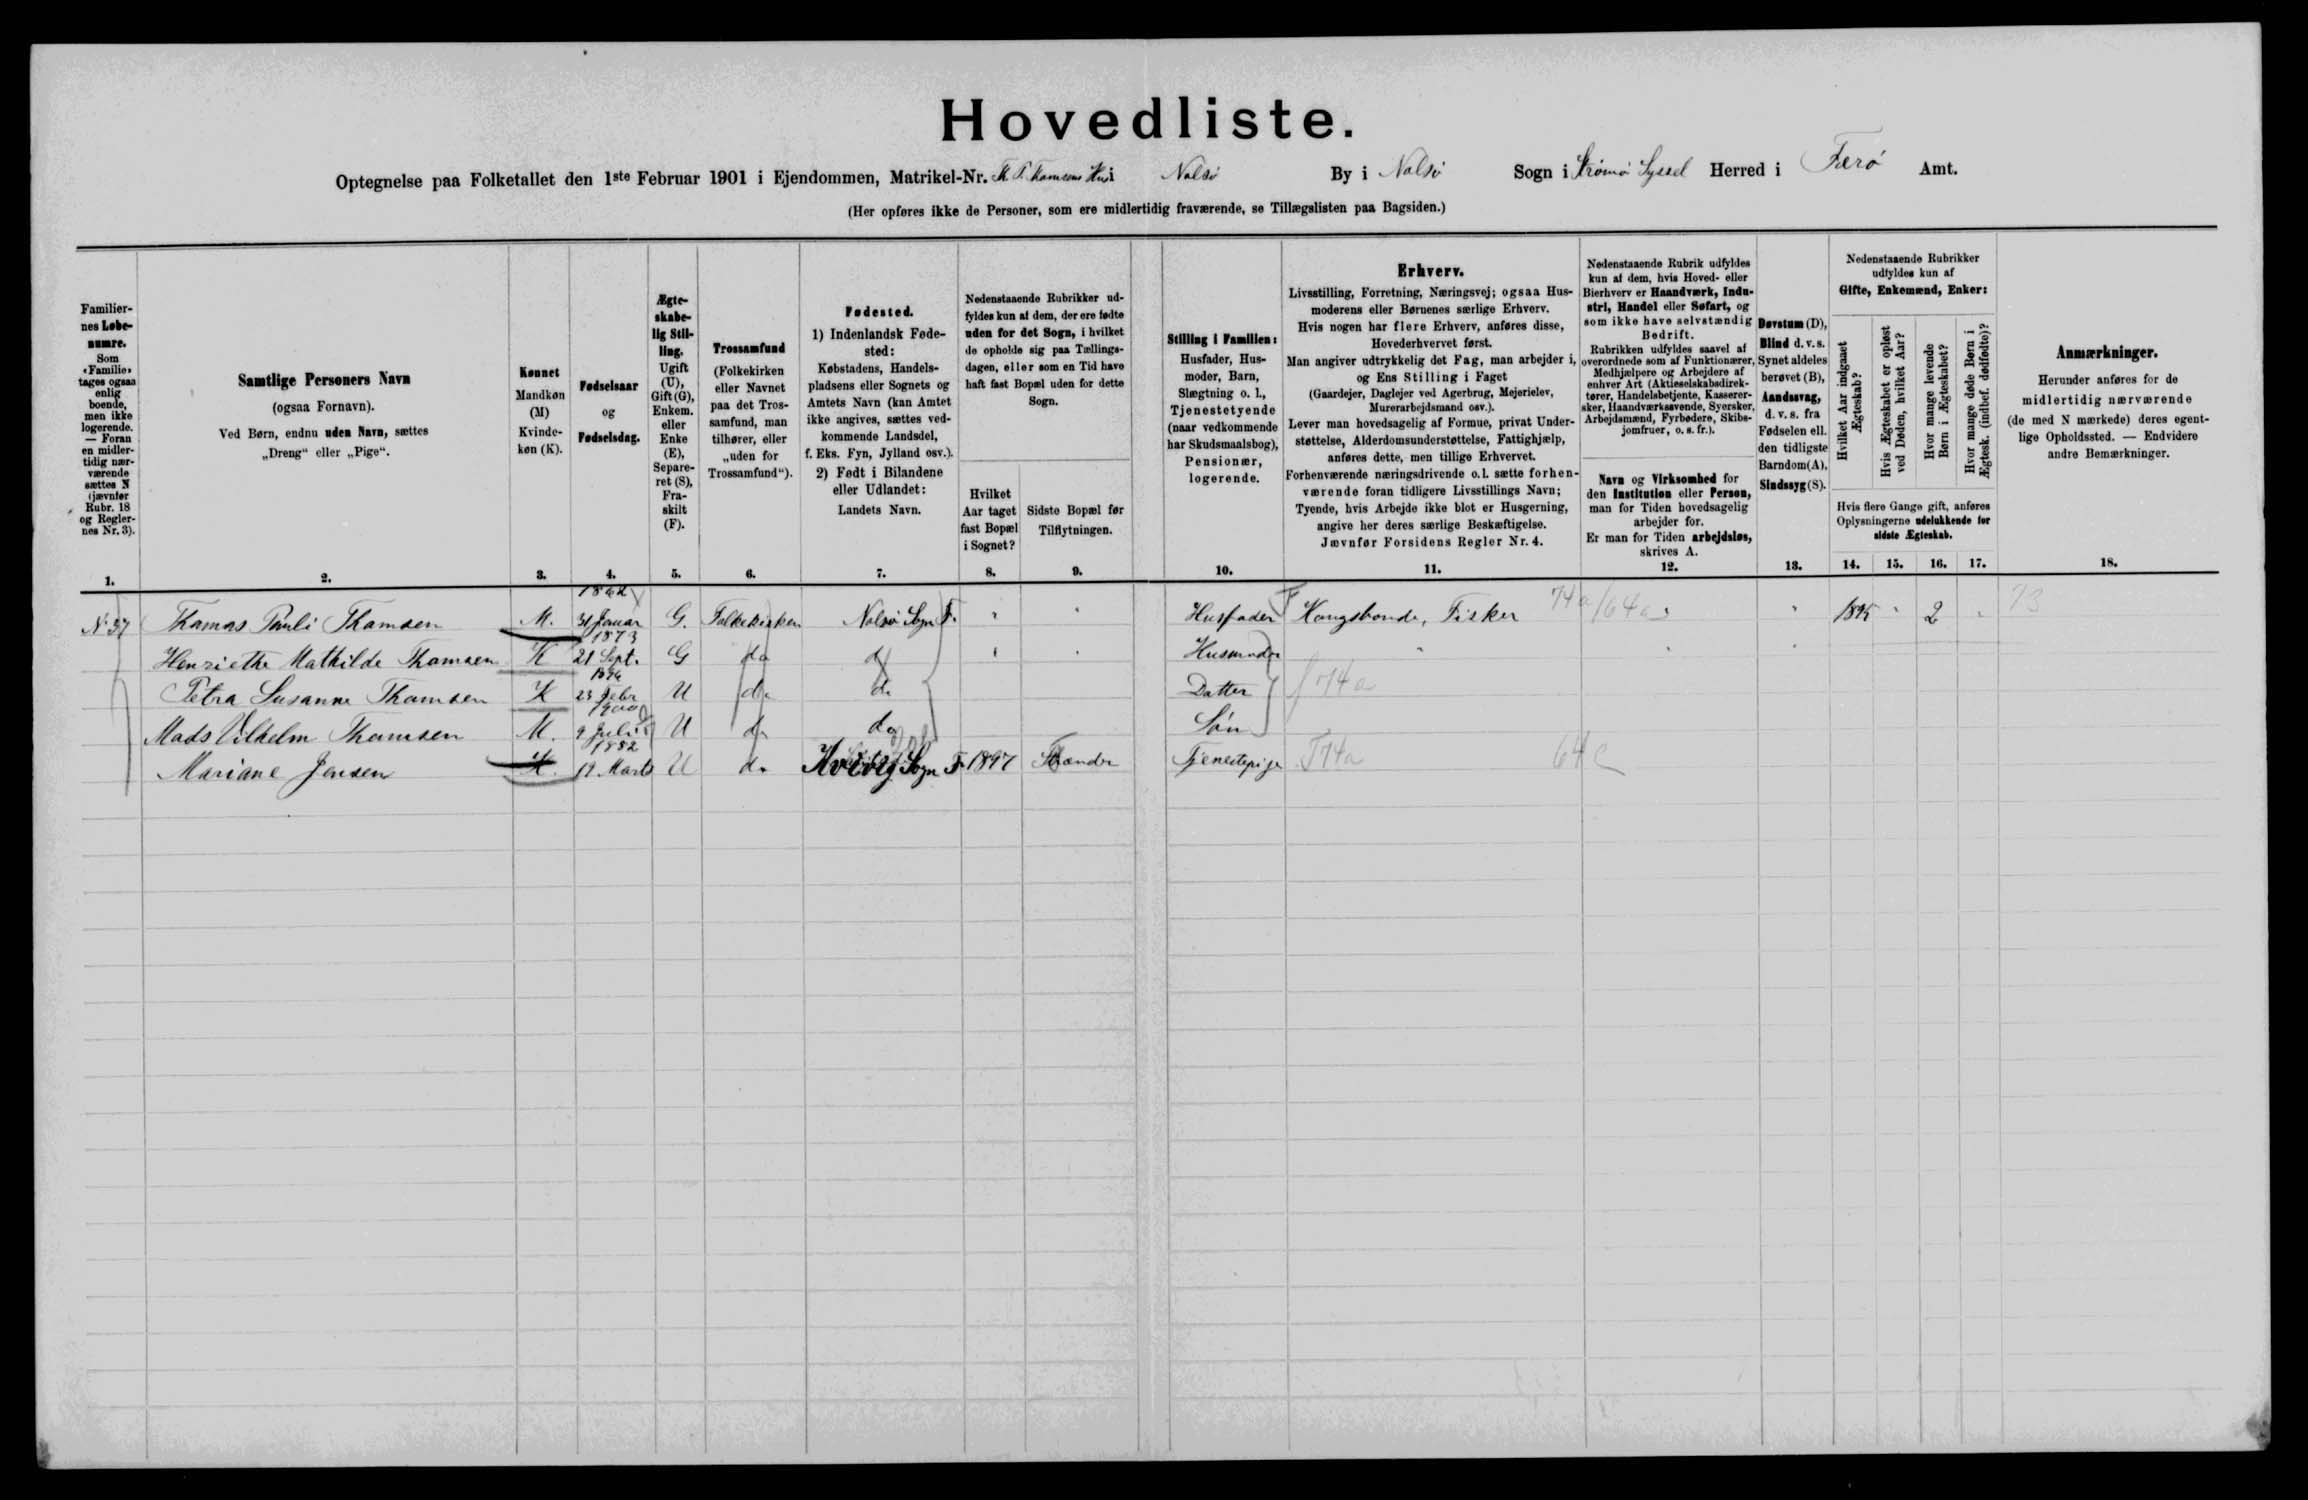 Hovedliste.
Optegnelse paa Folketallet den 1ste Februar 1901 i Ejendommen, Matrikel-Nr. Th. P. Thomsens Hus i Nolsø By i Nolsø Sogn i Strømø Syssel Herred i Færø Amt.
(Her opføres ikke de Personer, som ere midlertidig fraværende, se Tillægslisten paa Bagsiden.)
Familiernes Løbenumre.
Som «Familie» tages ogsaa enlig boende, men ikke logerende. — Foran en midlertidig nærværende sættes N (jævnfør Rubr. 18 og Reglernes Nr. 3).
1.
Samtlige Personers Navn
(ogsaa Fornavn).
Ved Børn, endnu uden Navn, sættes
„Dreng“ eller „Pige“.
2.
Kønnet
Mandkøn (M)
Kvindekøn (K).
3.
Fødselsaar
og
Fødselsdag.
4.
Ægteskabelig Stilling.
Ugift (U), Gift (G), Enkem. eller Enke (E), Separeret (S), Fraskilt (F).
5.
Trossamfund
(Folkekirken eller Navnet paa det Trossamfund, man tilhører, eller „uden for Trossamfund“).
6.
Fødested.
1) Indenlandsk Fødested:
Købstadens, Handelspladsens eller Sognets og Amtets Navn (kan Amtet ikke angives, sættes vedkommende Landsdel, f. Eks. Fyn, Jylland osv.).
2) Født i Bilandene eller Udlandet:
Landets Navn.
7.
Nedenstaaende Rubrikker udfyldes kun af dem, der ere fødte uden for det Sogn, i hvilket de opholde sig paa Tællingsdagen, eller som en Tid have haft fast Bopæl uden for dette Sogn.
Hvilket Aar taget fast Bopæl i Sognet?
8.
Sidste Bopæl før Tilflytningen.
9.
Stilling i Familien:
Husfader, Husmoder, Barn, Slægtning o. l., Tjenestetyende (naar vedkommende har Skudsmaalsbog), Pensionær, logerende.
10.
Erhverv.
Livsstilling, Forretning, Næringsvej; ogsaa Husmoderens eller Børnenes særlige Erhverv.
Hvis nogen har flere Erhverv, anføres disse, Hovederhvervet først.
Man angiver udtrykkelig det Fag, man arbejder i, og Ens Stilling i Faget
(Gaardejer, Daglejer ved Agerbrug, Mejerielev, Murerarbejdsmand osv.).
Lever man hovedsagelig af Formue, privat Understøttelse, Alderdomsunderstøttelse, Fattighjælp, anføres dette, men tillige Erhvervet.
Forhenværende næringsdrivende o.l. sætte forhenværende foran tidligere Livsstillings Navn;
Tyende, hvis Arbejde ikke blot er Husgerning, angive her deres særlige Beskæftigelse.
Jævnfør Forsidens Regler Nr. 4.
11.
Nedenstaaende Rubrik udfyldes kun af dem, hvis Hoved- eller Bierhverv er Haandværk, Industri, Handel eller Søfart, og som ikke have selvstændig Bedrift.
Rubrikken udfyldes saavel af overordnede som af Funktionærer, Medhjælpere og Arbejdere af enhver Art (Aktieselskabsdirektører, Handelsbetjente, Kasserersker, Haandværkssvende, Syersker, Arbejdsmænd, Fyrbødere, Skibsjomfruer, o. s. fr.).
Navn og Virksomhed for den Institution eller Person, man for Tiden hovedsagelig arbejder for.
Er man for Tiden arbejdsløs, skrives A.
12.
Døvstum (D), Blind d. v. s. Synet aldeles berøvet (B), Aandssvag, d. v. s. fra Fødselen ell. den tidligste Barndom (A), Sindssyg (S).
13.
Nedenstaaende Rubrikker udfyldes kun af Gifte, Enkemænd, Enker:
Hvilket Aar indgaaet Ægteskab?
Hvis Ægteskabet er opløst ved Døden, hvilket Aar?
Hvor mange levende Børn i Ægteskabet?
Hvor mange døde Børn i Ægtesk. (indbef. dødfødte)?
Hvis flere Gange gift, anføres Oplysningerne udelukkende for sidste Ægteskab.
14. 15. 16. 17.
Anmærkninger.
Herunder anføres for de midlertidig nærværende (de med N mærkede) deres egentlige Opholdssted. — Endvidere andre Bemærkninger.
18.
No 37 Thomas Pauli Thomsen M. 31 Januar G. Folkekirken Nolsø Sogn F. " " Husfader Kongsbonde, Fisker 74a/64a " " 1895 " 2 " 73
Henriethe Mathilde Thomsen K 1873 21 Sept. G do do " " Husmoder " " "
Petra Susanne Thomsen K 1896 23 Febr U do do Datter f 74a
Mads Vilhelm Thomsen M. 1900 9 Juli U do do Søn
Mariane Jensen K. 1882 19 Marts U do Kvivig Sogn F. 1897 Strænder Tjenestepige T74a 64c